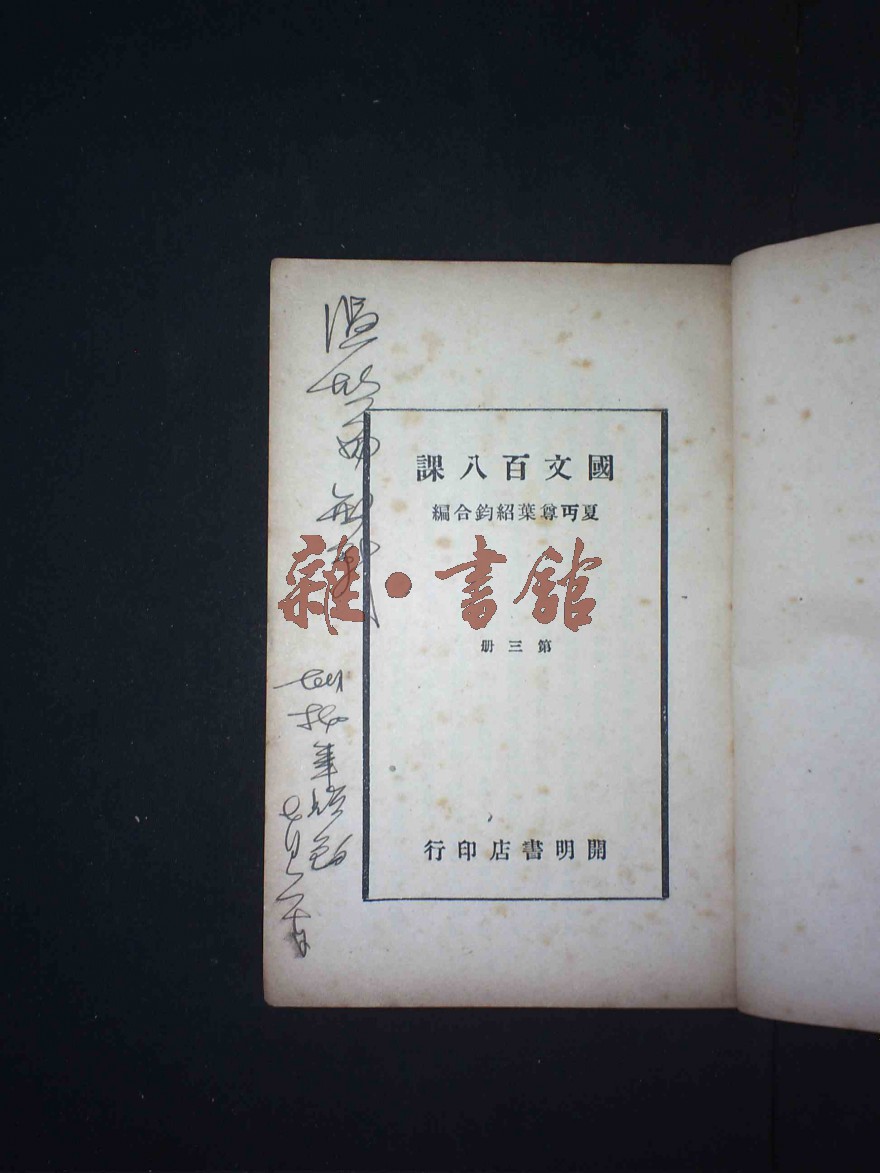 國文百八課
夏丏尊葉紹鈞合編
第三冊
開明書店印行
溫故而知新
雜·書館